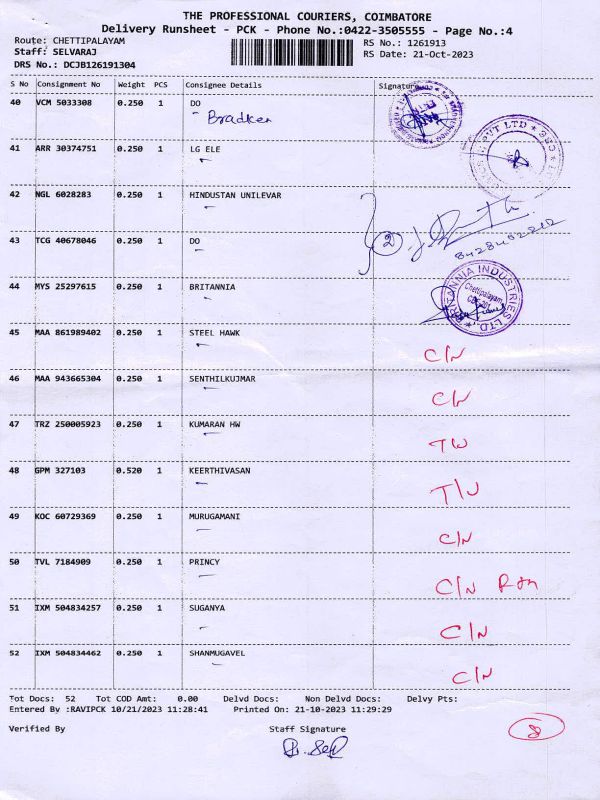 THE PROFESSIONAL COURIERS, COIMBATORE
Delivery Runsheet - PCK - Phone No.:0422-3505555 - Page No.:4
Route: CHETTIPALAYAM RS No.: 1261913
Staff: SELVARAJ RS Date: 21-Oct-2023
DRS No.: DCJB126191304
S No Consignment No Weight PCS Consignee Details Signature
40 VCM 5033308 0.250 1 DO
Bradken
41 ARR 30374751 0.250 1 LG ELE
PVT LTD
42 NGL 6028283 0.250 1 HINDUSTAN UNILEVAR
2
43 TCG 40678046 0.250 1 DO
44 MYS 25297615 0.250 1 BRITANNIA
BRITANNIA INDUSTRIES LTD.
Chettipalayam
45 MAA 861989402 0.250 1 STEEL HAWK
C/N
46 MAA 943665304 0.250 1 SENTHILKUJMAR
C/N
47 TRZ 250005923 0.250 1 KUMARAN HW
48 GPM 327103 0.520 1 KEERTHIVASAN
49 KOC 60729369 0.250 1 MURUGAMANI
C/N
50 TVL 7184909 0.250 1 PRINCY
C/N
51 IXM 504834257 0.250 1 SUGANYA
C/N
52 IXM 504834462 0.250 1 SHANMUGAVEL
C/N
Tot Docs: 52 Tot COD Amt: 0.00 Delvd Docs: Non Delvd Docs: Delvy Pts:
Entered By :RAVIPCK 10/21/2023 11:28:41 Printed On: 21-10-2023 11:29:29
8
Verified By Staff Signature